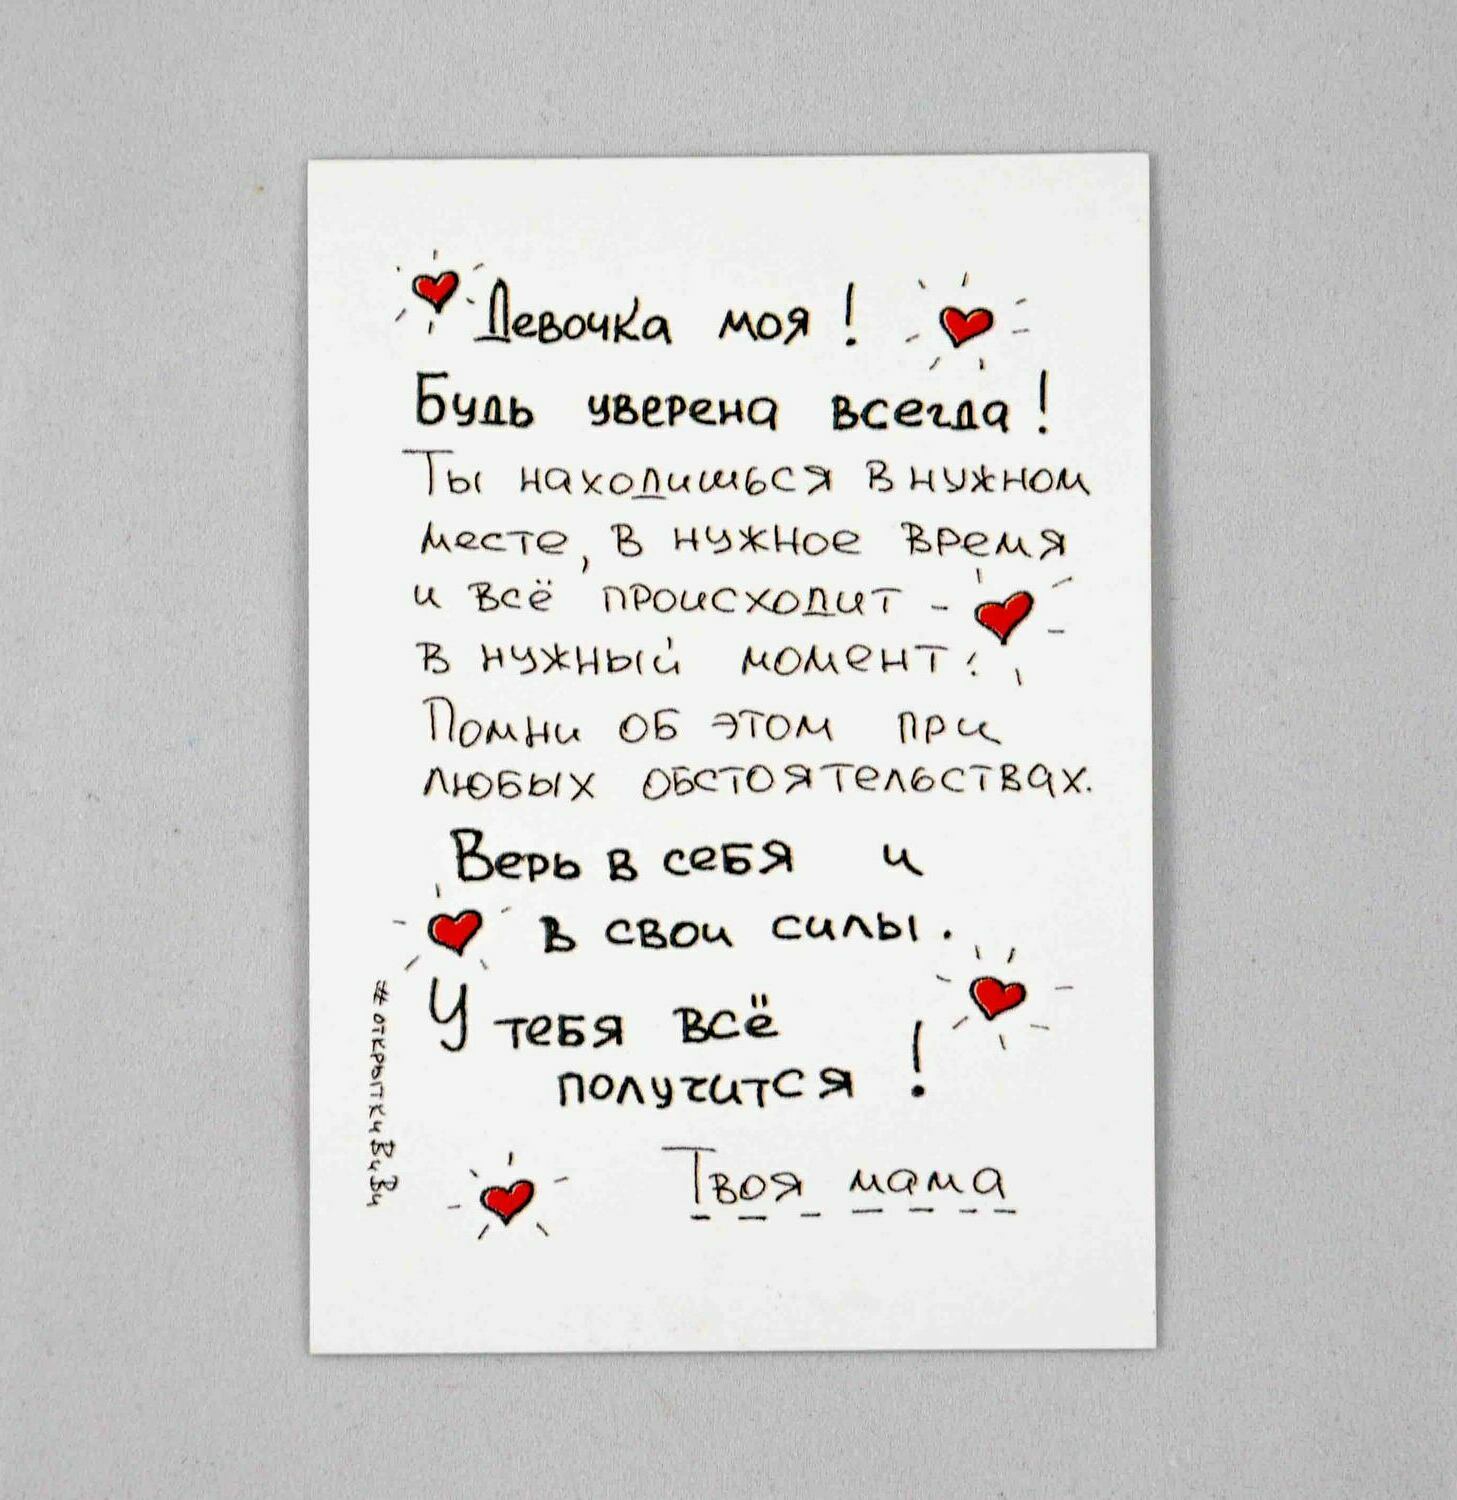 Девочка моя!
Будь уверена всегда!
Ты находишься в нужном
месте, в нужное время
и всё происходит -
в нужный момент!
Помни об этом при
любых обстоятельствах.
Верь в себя и
в свои силы.
У тебя всё
получится!
Твоя мама
#открыткиВиВи